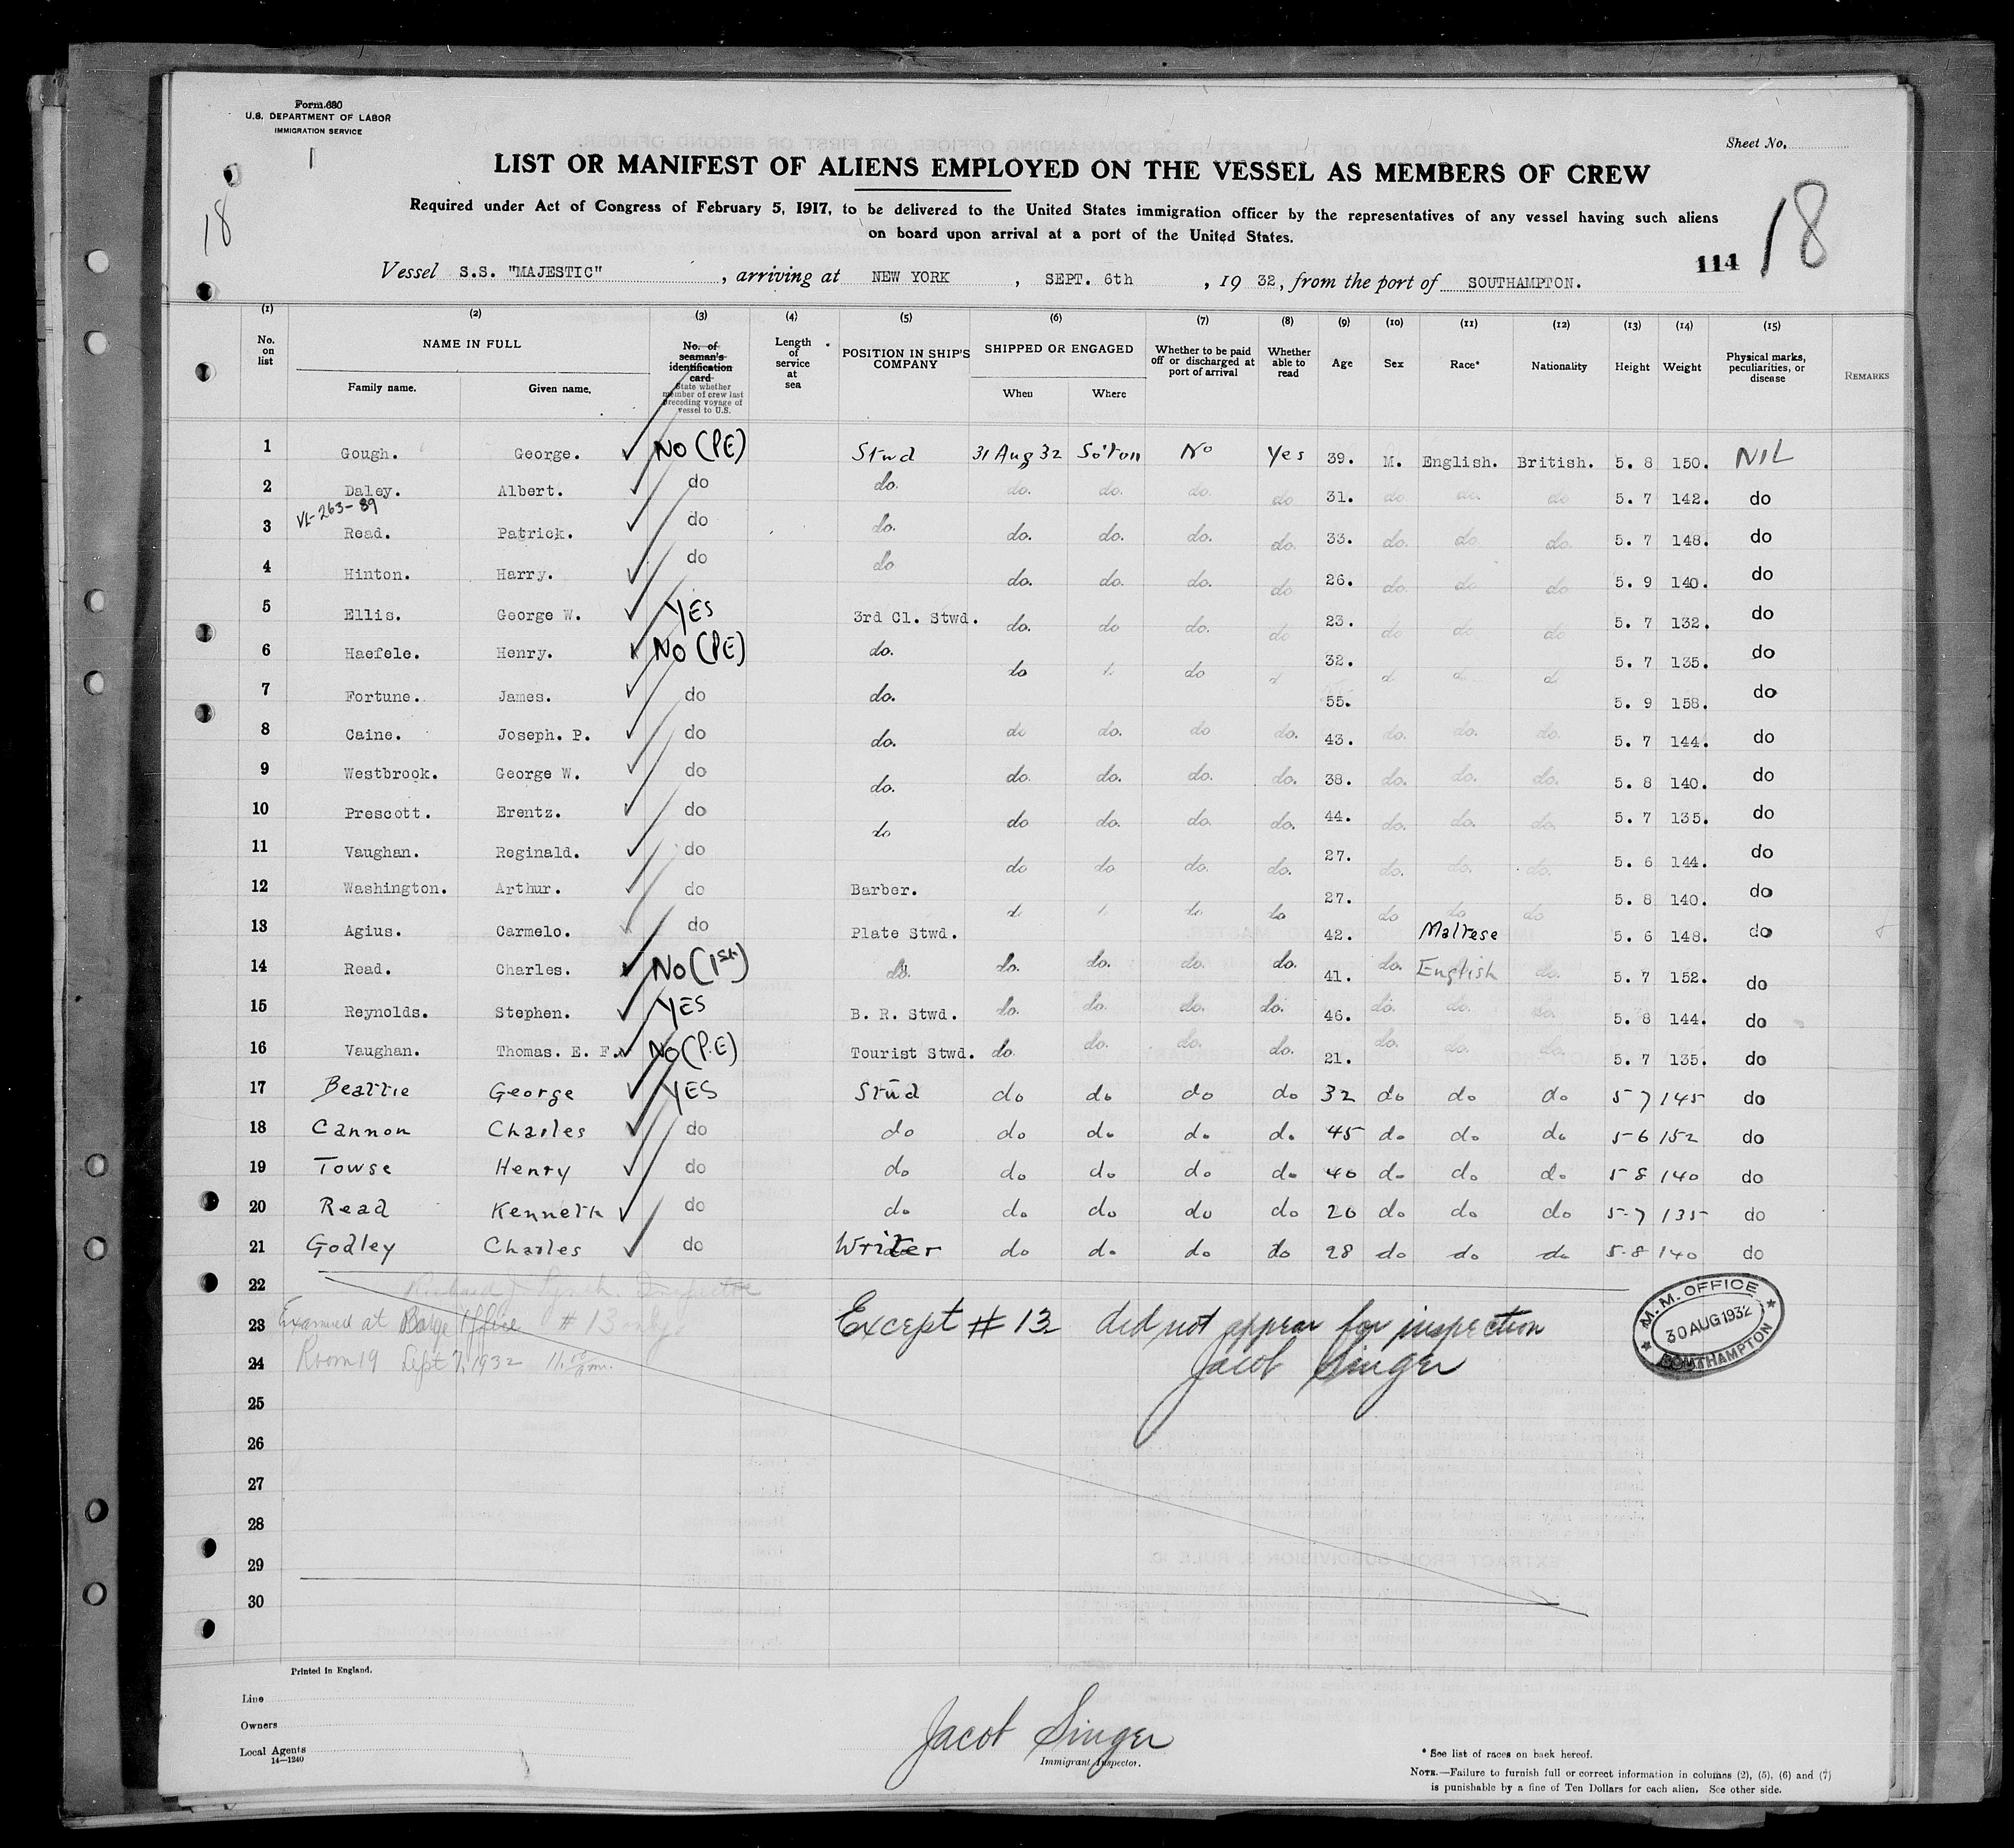 Form 680
U.S. DEPARTMENT OF LABOR
IMMIGRATION SERVICE
1
18
Sheet No.
LIST OR MANIFEST OF ALIENS EMPLOYED ON THE VESSEL AS MEMBERS OF CREW
Required under Act of Congress of February 5, 1917, to be delivered to the United States immigration officer by the representatives of any vessel having such aliens
on board upon arrival at a port of the United States.
114 18
Vessel S.S. "MAJESTIC", arriving at NEW YORK, SEPT. 6th, 19 32, from the port of SOUTHAMPTON.
(1) (2) (3) (4) (5) (6) (7) (8) (9) (10) (11) (12) (13) (14) (15)
No. on list NAME IN FULL Family name. Given name. No. of seaman's identification card State whether member of crew last preceding voyage of vessel to U.S. Length of service at sea POSITION IN SHIP'S COMPANY SHIPPED OR ENGAGED When Where Whether to be paid off or discharged at port of arrival Whether able to read Age Sex Race* Nationality Height Weight Physical marks, peculiarities, or disease REMARKS
1 Gough. George. ✓ NO (PE) Stwd 31 Aug 32 So'ton No Yes 39. M. English. British. 5. 8 150. NIL
2 Daley. Albert. ✓ do do. do. do. do. do 31. do do do 5. 7 142. do
VL-263-89
3 Read. Patrick. ✓ do do. do. do. do. do. 33. do. do do. 5. 7 148. do
4 Hinton. Harry. ✓ do do do. do. do. do 26. do. do do 5. 9 140. do
5 Ellis. George W. ✓ YES 3rd Cl. Stwd. do. do do. do 23. do do do 5. 7 132. do
6 Haefele. Henry. ✓ NO (PE) do. do do 32. 5. 7 135. do
7 Fortune. James. ✓ do do. 55. 5. 9 158. do
8 Caine. Joseph. P. ✓ do do. do do. do do. 43. do. do. do. 5. 7 144. do
9 Westbrook. George W. ✓ do do. do. do. do. do. 38. do. do. do. 5. 8 140. do
10 Prescott. Erentz. ✓ do do do do. do. do. 44. do. do. do. 5. 7 135. do
11 Vaughan. Reginald. ✓ do do do do. do. 27. do. do. do. 5. 6 144. do
12 Washington. Arthur. ✓ do Barber. do do 27. do do do 5. 8 140. do
13 Agius. Carmelo. ✓ do Plate Stwd. 42. Maltese 5. 6 148. do
14 Read. Charles. ✓ NO (1st) do. do. do. do. do. 41. do. English do. 5. 7 152. do
15 Reynolds. Stephen. ✓ YES B. R. Stwd. do. do. do. do. 46. do. do. do. 5. 8 144. do
16 Vaughan. Thomas. E. F. ✓ NO (P.E) Tourist Stwd. do. do. do. do. 21. do. do. do. 5. 7 135. do
17 Beattie George ✓ YES Stwd do do do do 32 do do do 5-7 145 do
18 Cannon Charles ✓ do do do do do do 45 do do do 5-6 152 do
19 Towse Henry ✓ do do do do do do 40 do do do 5-8 140 do
20 Read Kenneth ✓ do do do do do do 20 do do do 5-7 135 do
21 Godley Charles ✓ do Writer do do do do 28 do do do 5-8 140 do
22 Inspector
23 Examined at Barge Office # 13 only Except # 13 did not appear for inspection
24 Room 19 Sept 7, 1932 Jacob Singer
M. M. OFFICE
30 AUG 1932
SOUTHAMPTON
25
26
27
28
29
30
Printed in England.
Line
Owners
Local Agents
14—1240
Jacob Singer
Immigrant Inspector.
* See list of races on back hereof.
NOTE.—Failure to furnish full or correct information in columns (2), (5), (6) and (7)
is punishable by a fine of Ten Dollars for each alien. See other side.